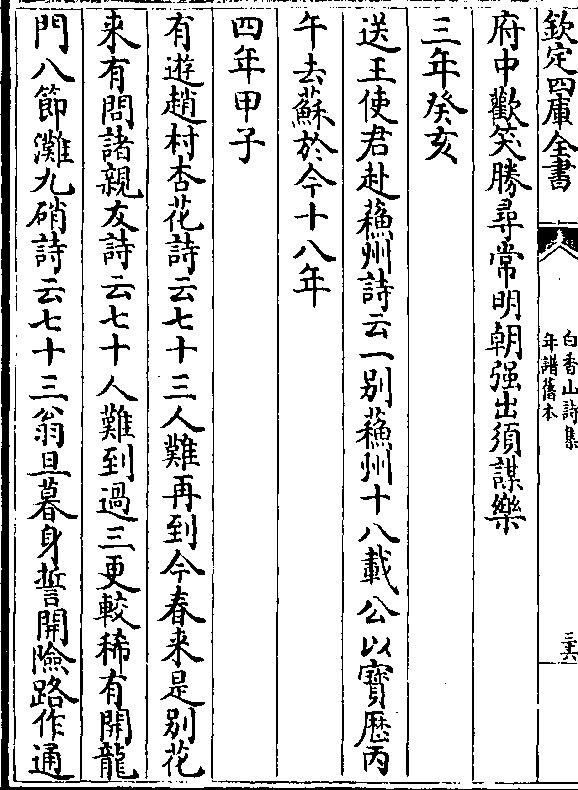 欽定四庫全書
白香山詩集
年譜舊本
三六
府中歡笑勝尋常明朝强出須謀樂
三年癸亥
送王使君赴蘓州詩云一別蘓州十八載公以寶歴丙
午去蘇於今十八年
四年甲子
有遊趙村杏花詩云七十三人難再到今春来是別花
来有問諸親友詩云七十人難到過三更較稀有開龍
門八節灘九硝詩云七十三翁旦暮身誓開險路作通